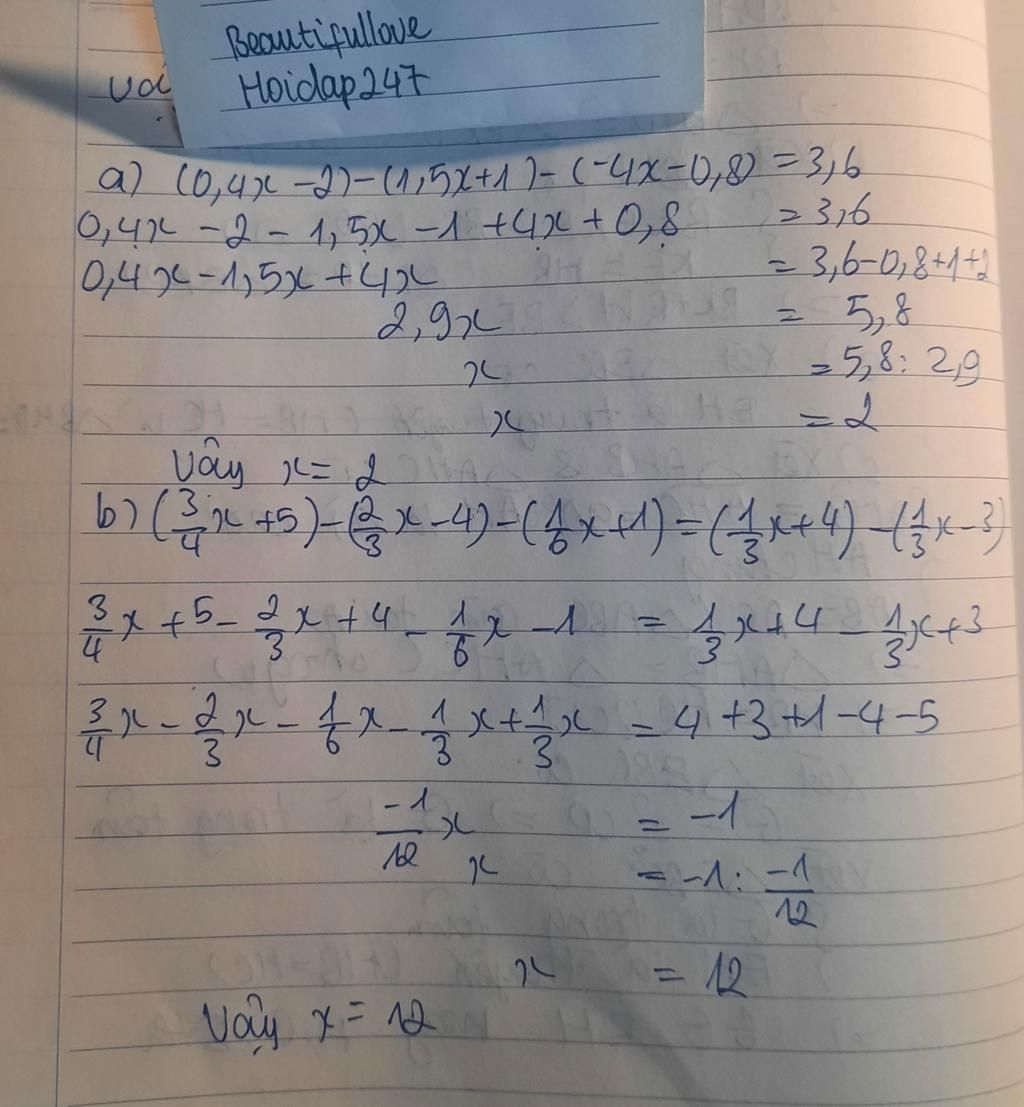 Beautifullove
Hoidap247
a) (0,4x - 2) - (1,5x + 1) - (-4x - 0,8) = 3,6
0,4x - 2 - 1,5x - 1 + 4x + 0,8 = 3,6
0,4x - 1,5x + 4x = 3,6 - 0,8 + 1 + 2
2,9x = 5,8
x = 5,8 : 2,9
x = 2
Vậy x = 2
b) (3/4 x + 5) - (2/3 x - 4) - (1/6 x + 1) = (1/3 x + 4) - (1/3 x - 3)
3/4 x + 5 - 2/3 x + 4 - 1/6 x - 1 = 1/3 x + 4 - 1/3 x + 3
3/4 x - 2/3 x - 1/6 x - 1/3 x + 1/3 x = 4 + 3 + 1 - 4 - 5
-1/12 x = -1
x = -1 : -1/12
x = 12
Vậy x = 12